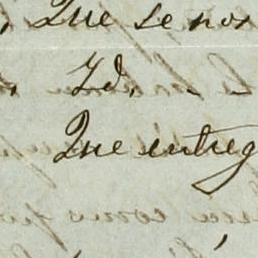 Que se nos
Id.
Que entreg